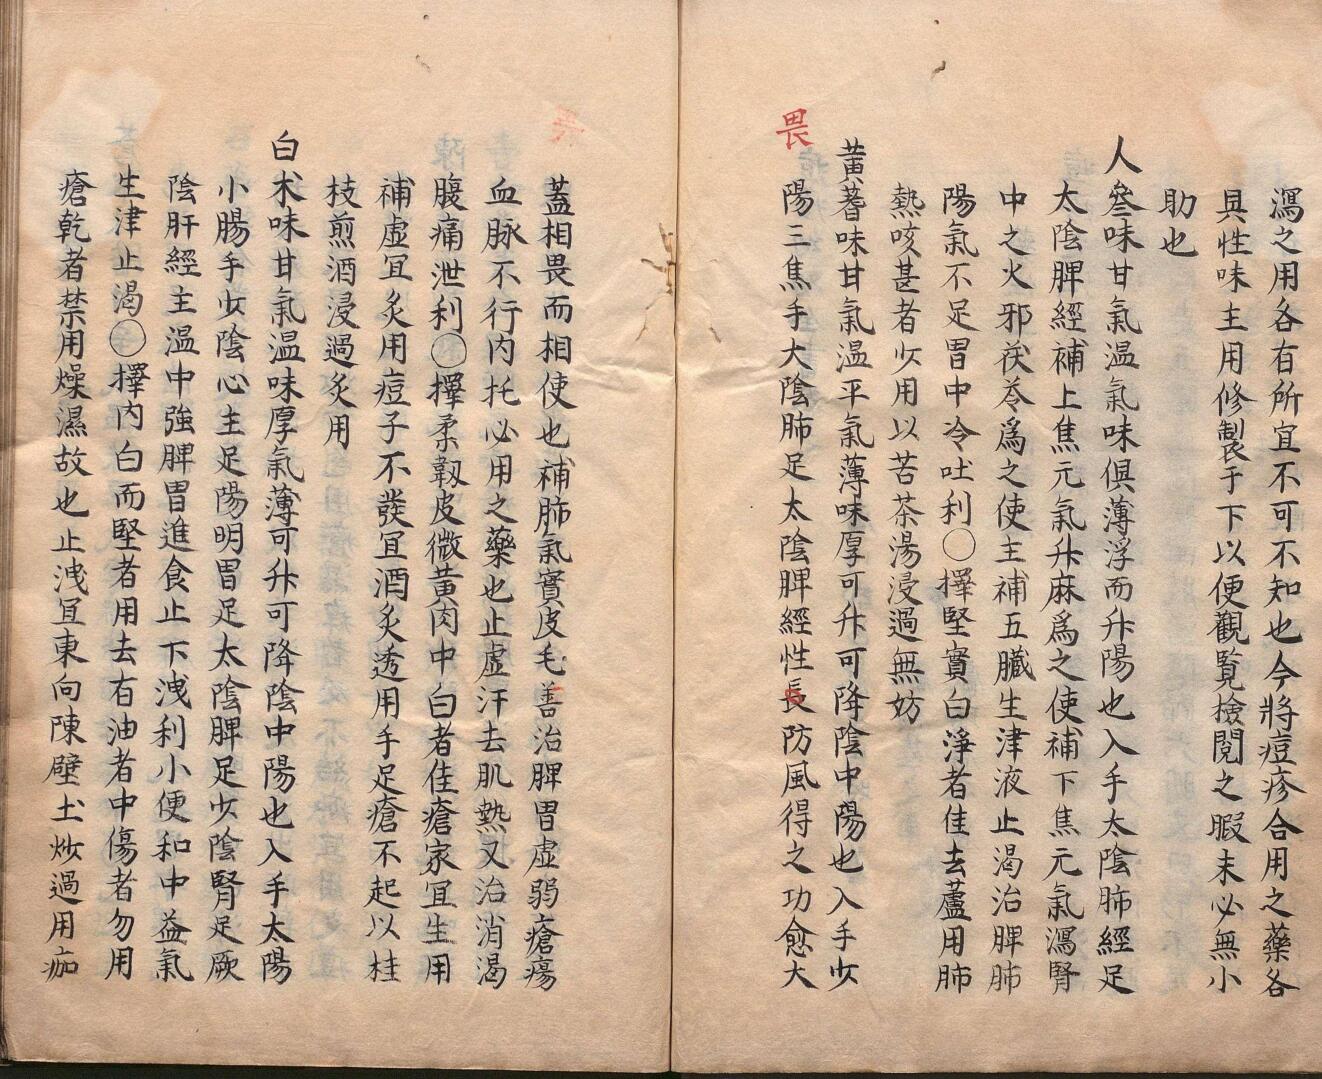 瀉之用各有所宜不可不知也今將痘疹合用之藥各
具性味主用修製于下以便觀覧檢閲之暇未必無小
助也
人參味甘氣温氣味俱薄浮而升陽也入手太陰肺經足
太陰脾經補上焦元氣升麻爲之使補下焦元氣瀉腎
中之火邪茯苓爲之使主補五臟生津液止渴治脾肺
陽氣不足胃中冷吐利○擇堅實白淨者佳去蘆用肺
熱咳甚者少用以苦茶湯浸過無妨
黃蓍味甘氣温平氣薄味厚可升可降陰中陽也入手少
陽三焦手大陰肺足太陰脾經性畏防風得之功愈大
畏
蓋相畏而相使也補肺氣實皮毛善治脾胃虚弱瘡瘍
血脉不行内托必用之藥也止虚汗去肌熱又治消渴
腹痛泄利○擇柔韌皮微黄肉中白者佳瘡家冝生用
補虚冝炙用痘子不發冝酒炙透用手足瘡不起以桂
枝煎酒浸過炙用
白朮味甘氣温味厚氣薄可升可降陰中陽也入手太陽
小腸手少陰心主足陽明胃足太陰脾足少陰腎足厥
陰肝經主温中強脾胃進食止下洩利小便和中益氣
生津止渴○擇内白而堅者用去有油者中傷者勿用
瘡乾者禁用燥濕故也止洩冝東向陳壁土炒過用痂